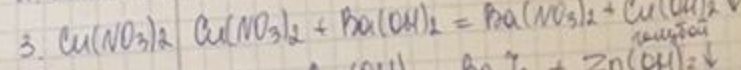 3. Cu(NO3)2 Cu(NO3)2 + Ba(OH)2 = Ba(NO3)2 + Cu(OH)2 ↓
голубой
Zn(OH)2 ↓